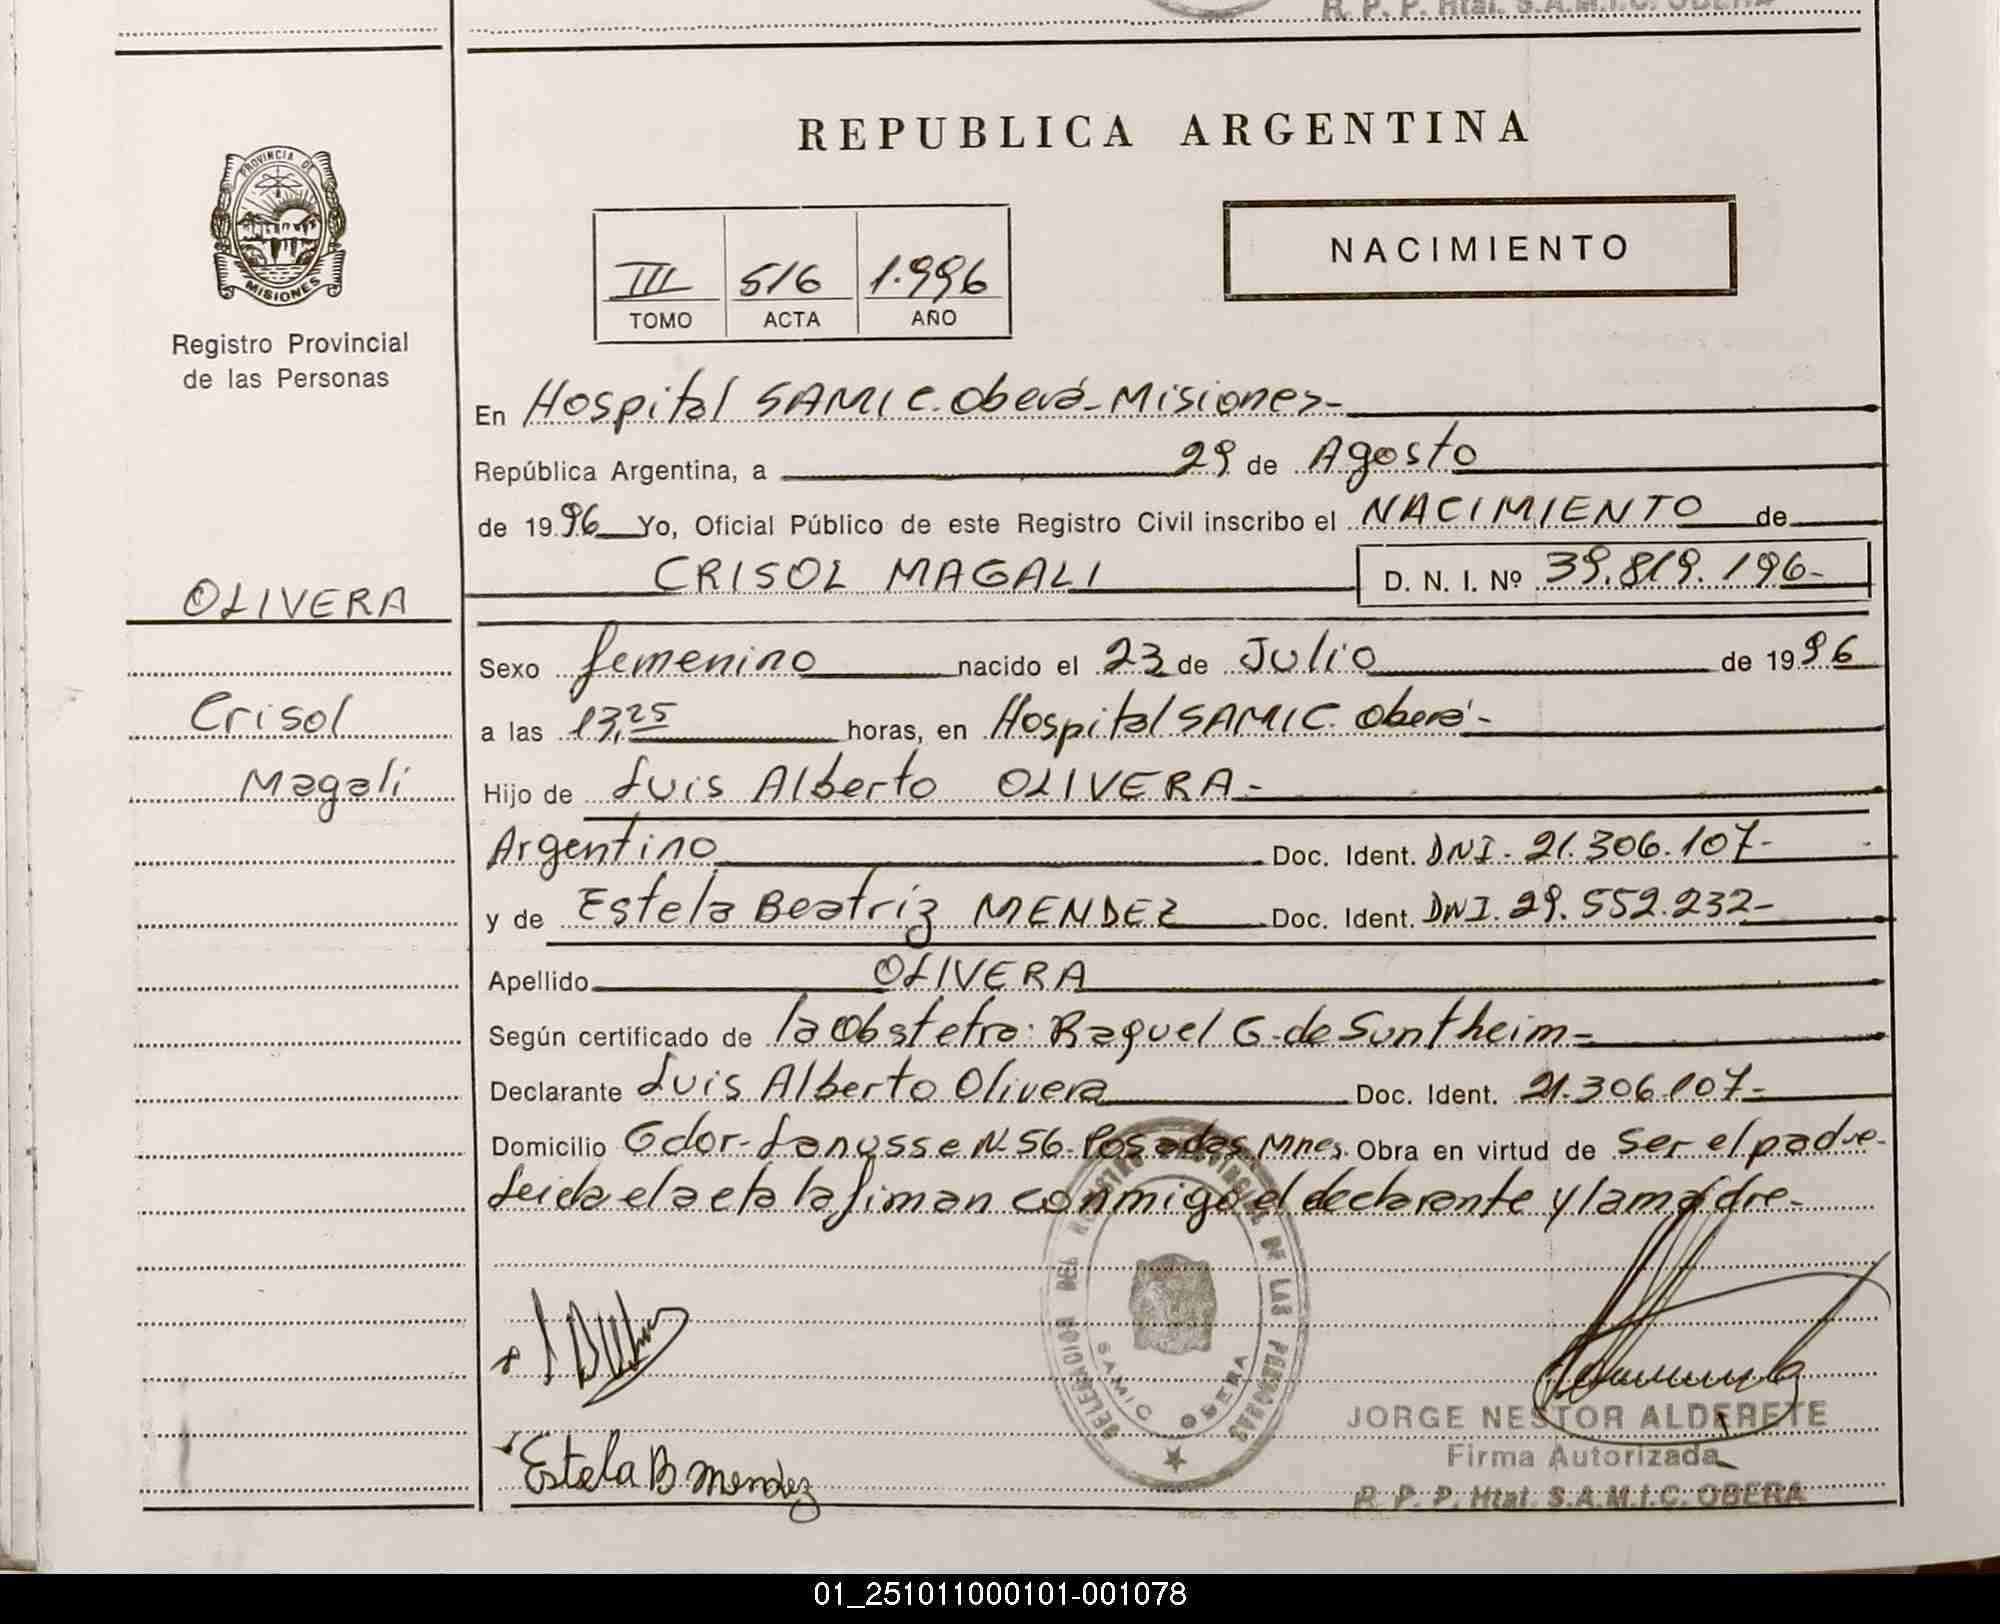 R. P. P. Htal. S.A.M.I.C. OBERA
REPUBLICA ARGENTINA
PROVINCIA DE
MISIONES
Registro Provincial
de las Personas
NACIMIENTO
III 516 1.996
TOMO ACTA AÑO
En Hospital SAMIC. Oberá - Misiones -
República Argentina, a 29 de Agosto
de 1996 Yo, Oficial Público de este Registro Civil inscribo el NACIMIENTO de
CRISOL MAGALI D. N. I. Nº 39.819.196-
OLIVERA
Crisol
Magali
Sexo femenino nacido el 23 de Julio de 1996
a las 13,25 horas, en Hospital SAMIC. Oberá -
Hijo de Luis Alberto OLIVERA -
Argentino Doc. Ident. DNI. 21.306.107-
y de Estela Beatriz MENDEZ Doc. Ident. DNI. 29.552.232-
Apellido OLIVERA
Según certificado de la Obstetra: Raquel G. de Suntheim -
Declarante Luis Alberto Olivera Doc. Ident. 21.306.107-
Domicilio Gdor. Lanusse N 56 - Posadas, Mnes. Obra en virtud de ser el padre -
Leida el acta la firman conmigo el declarante y la madre -
DELEGACION DEL REGISTRO PROVINCIAL DE LAS PERSONAS
SAMIC OBERA
Estela B Mendez
JORGE NESTOR ALDERETE
Firma Autorizada
R. P. P. Htal. S.A.M.I.C. OBERA
01_251011000101-001078